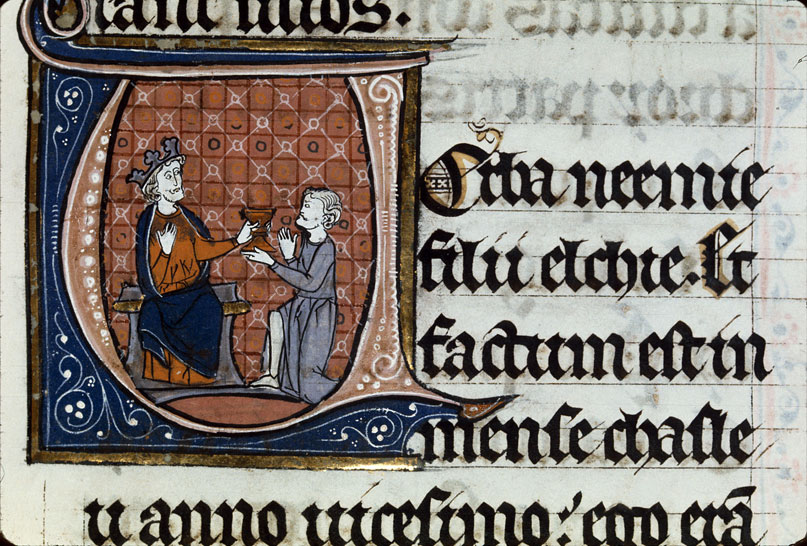 erant filios.
UErba neemie
filii elchie. Et
factum est in
mense chasle
u anno uicesimo: ego erā